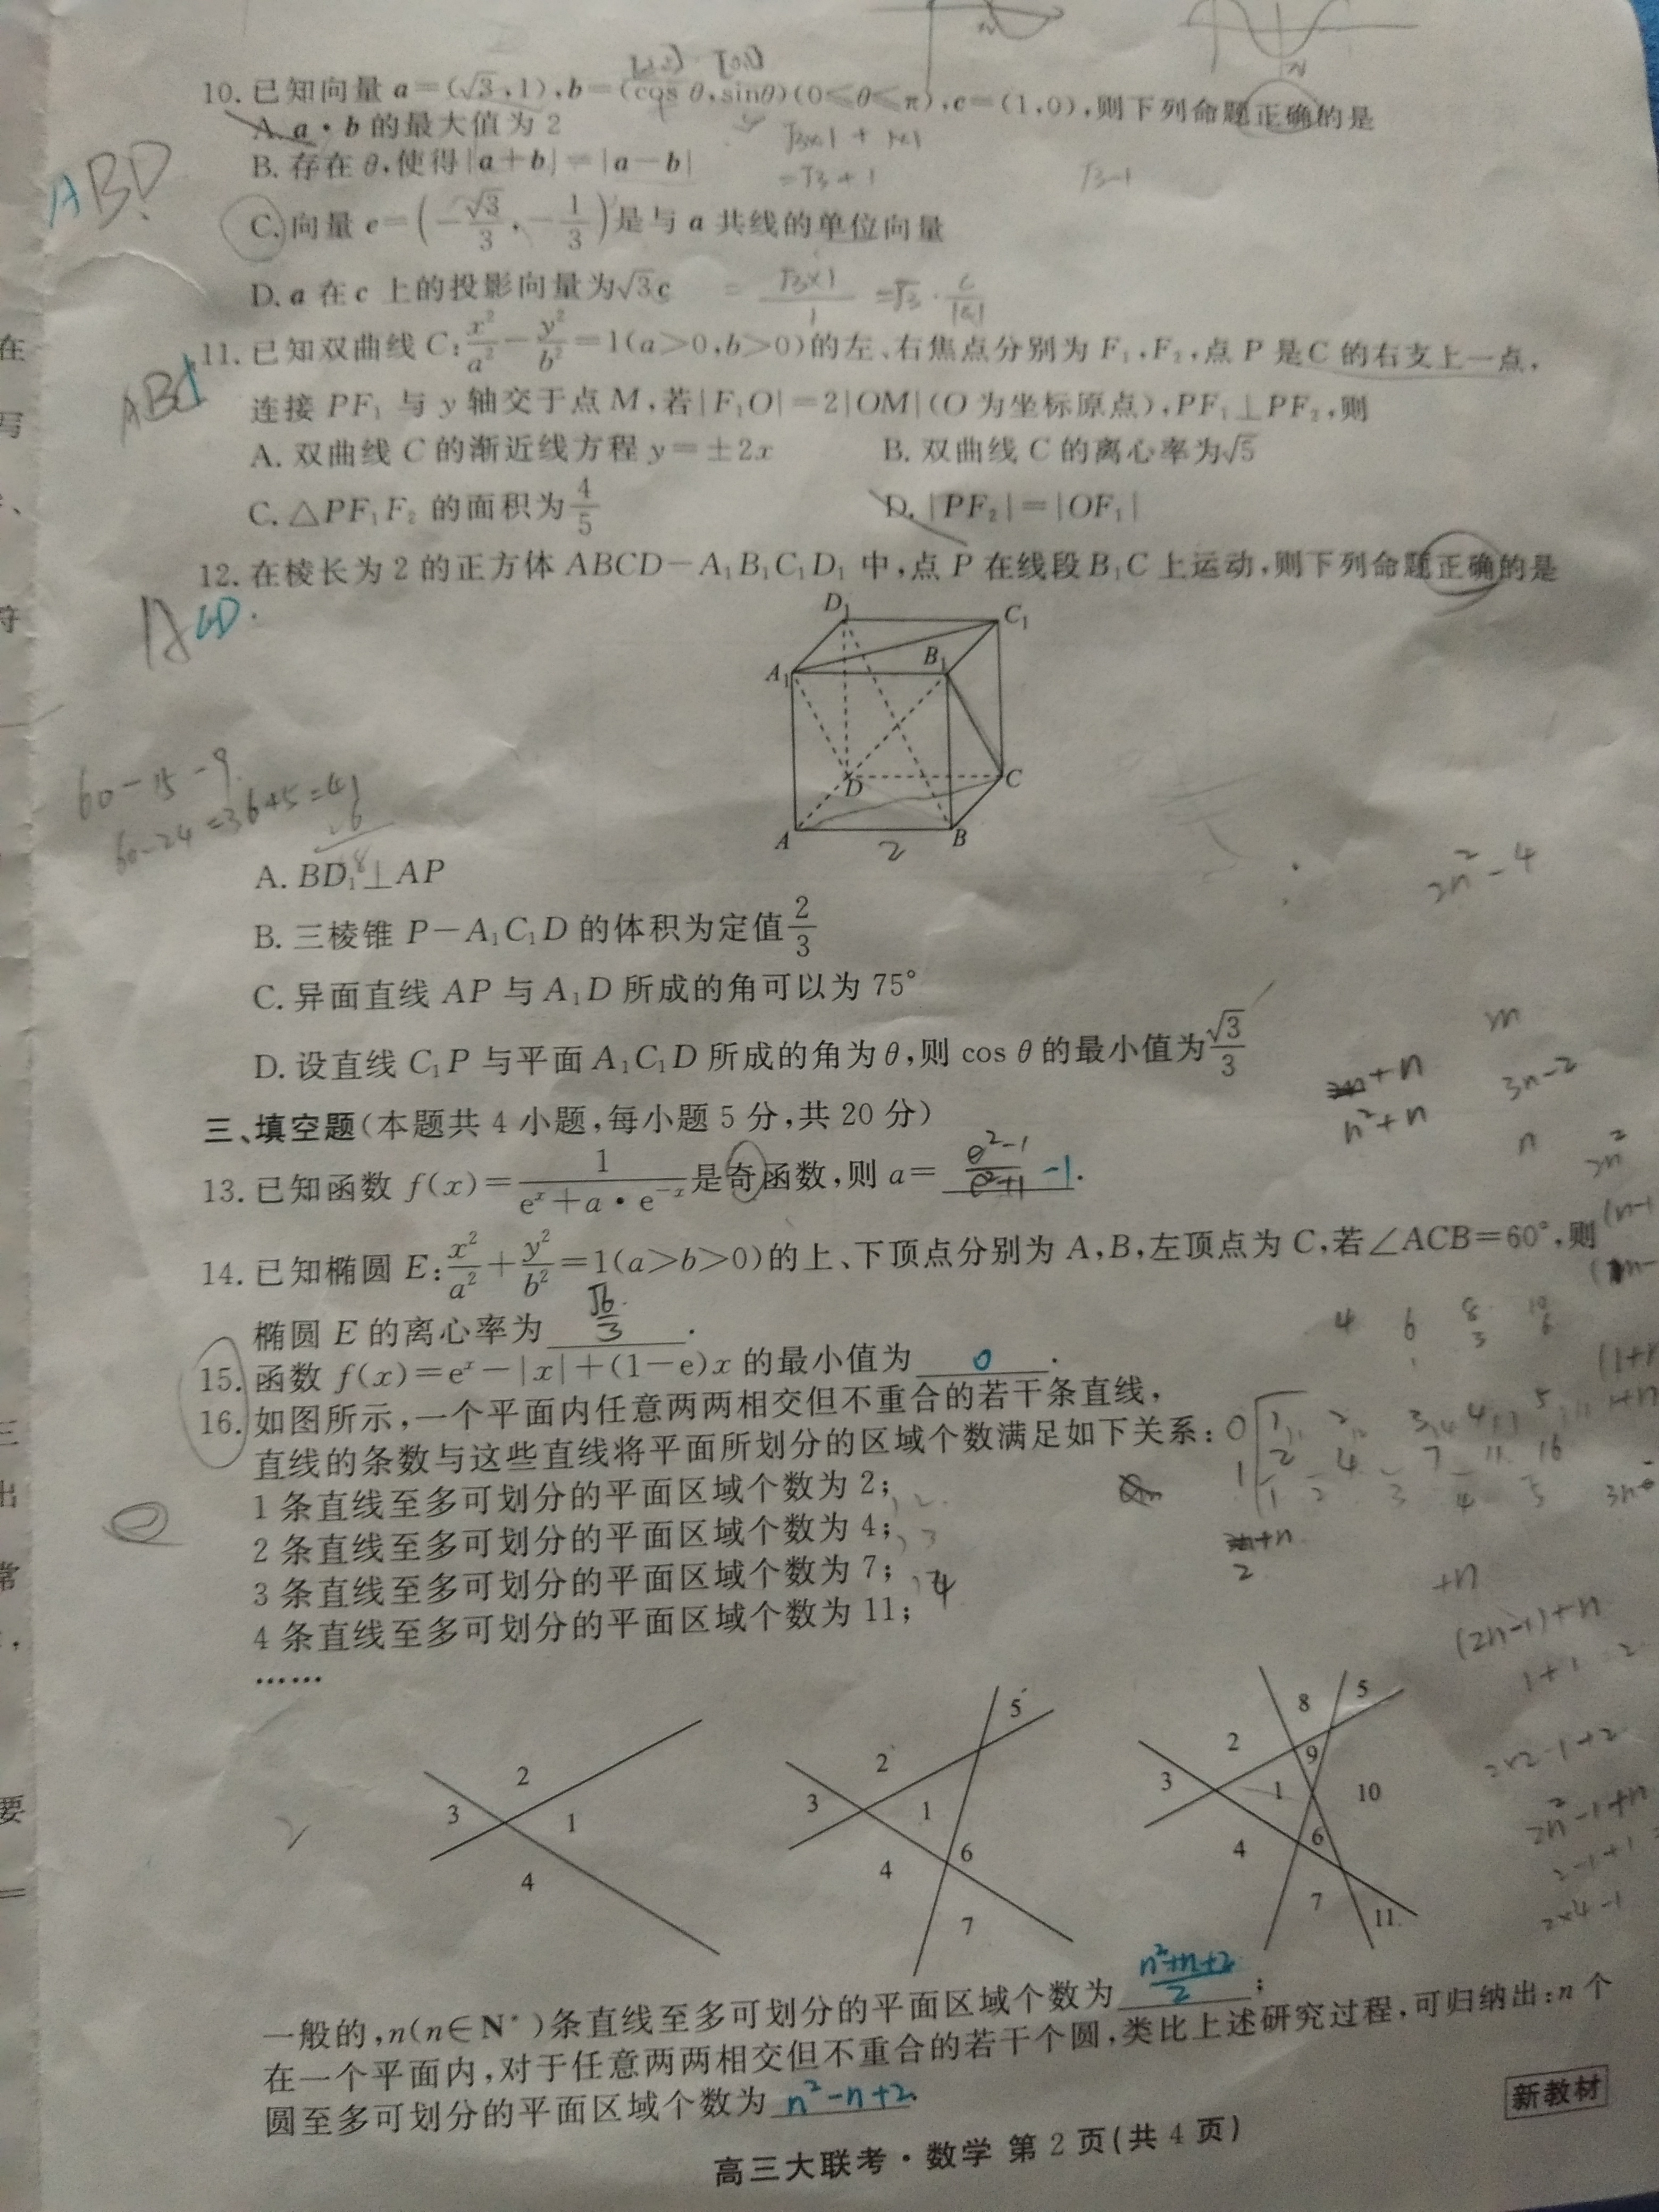 10. 已知向量 a=(√3,1),b=(cos θ,sinθ)(0≤θ≤π),c=(1,0),则下列命题正确的是
A. a·b 的最大值为 2
√3×1 + 1×1
ABD
B. 存在 θ,使得|a+b|=|a-b|
=√3+1
√3-1
C. 向量 e=(-√3/3,-1/3)是与 a 共线的单位向量
D. a 在 c 上的投影向量为√3c
= √3×1/1 =√3·c/|c|
11. 已知双曲线 C:x²/a²-y²/b²=1(a>0,b>0)的左、右焦点分别为 F₁,F₂,点 P 是 C 的右支上一点,
连接 PF₁ 与 y 轴交于点 M,若|F₁O|=2|OM|(O 为坐标原点),PF₁⊥PF₂,则
A. 双曲线 C 的渐近线方程 y=±2x
B. 双曲线 C 的离心率为√5
C. △PF₁F₂ 的面积为4/5
D. |PF₂|=|OF₁|
12. 在棱长为 2 的正方体 ABCD-A₁B₁C₁D₁ 中,点 P 在线段 B₁C 上运动,则下列命题正确的是
ACD.
D₁
C₁
A₁
B₁
D
C
A
B
2
60-15-9
60-24=36+5=41
2n²-4
A. BD₁⊥AP
B. 三棱锥 P-A₁C₁D 的体积为定值2/3
C. 异面直线 AP 与 A₁D 所成的角可以为 75°
D. 设直线 C₁P 与平面 A₁C₁D 所成的角为 θ,则 cos θ 的最小值为√3/3
n²+n
3n-2
三、填空题(本题共 4 小题,每小题 5 分,共 20 分)
13. 已知函数 f(x)=1/(eˣ+a·e⁻ˣ)是奇函数,则 a= -1.
14. 已知椭圆 E:x²/a²+y²/b²=1(a>b>0)的上、下顶点分别为 A,B,左顶点为 C,若∠ACB=60°,则
椭圆 E 的离心率为 √6/3.
15. 函数 f(x)=eˣ-|x|+(1-e)x 的最小值为 0.
16. 如图所示,一个平面内任意两两相交但不重合的若干条直线,
直线的条数与这些直线将平面所划分的区域个数满足如下关系:
0 1 2 3 4 5
1 2 4 7 11 16
1 2 3 4 5
1 条直线至多可划分的平面区域个数为 2;
2 条直线至多可划分的平面区域个数为 4;
3 条直线至多可划分的平面区域个数为 7;
4 条直线至多可划分的平面区域个数为 11;
……
+n
(2n-1)+n
1+1 2
2×2-1+2
2n²-1+n
2-1+1
2×4-1
2
3
1
4
2
5
3
1
4
6
7
8
5
2
9
3
1
10
4
6
7
11
一般的,n(n∈N*)条直线至多可划分的平面区域个数为 (n²+n+2)/2;
在一个平面内,对于任意两两相交但不重合的若干个圆,类比上述研究过程,可归纳出:n 个
圆至多可划分的平面区域个数为 n²-n+2.
新教材
高三大联考·数学 第 2 页(共 4 页)